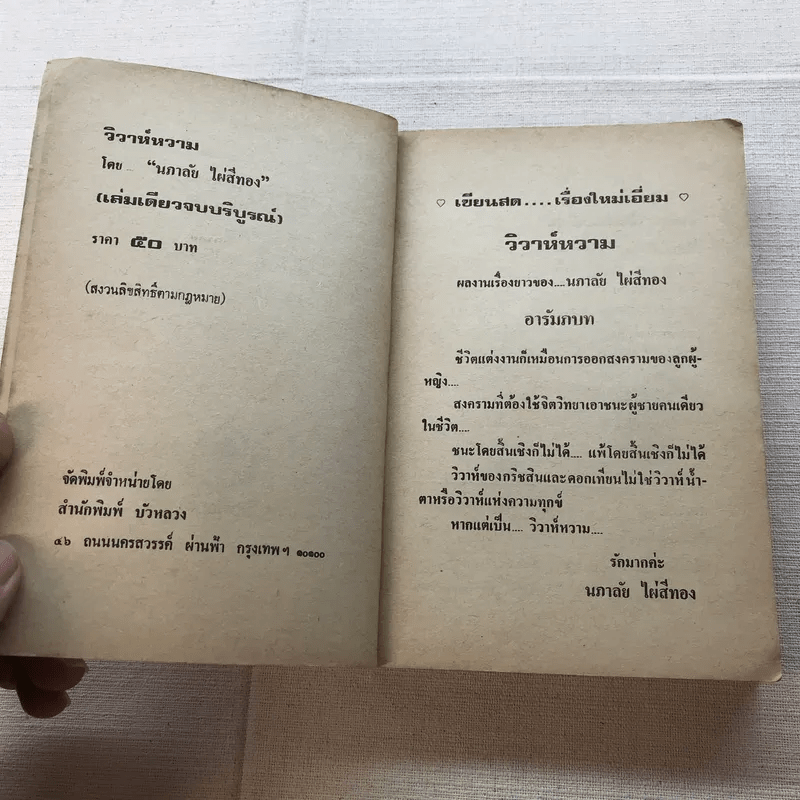 วิวาห์หวาม
โดย “นภาลัย ไผ่สีทอง”
(เล่มเดียวจบบริบูรณ์)
ราคา ๕๐ บาท
(สงวนลิขสิทธิ์ตามกฎหมาย)
จัดพิมพ์จำหน่ายโดย
สำนักพิมพ์ บัวหลวง
๔๖ ถนนนครสวรรค์ ผ่านฟ้า กรุงเทพฯ ๑๐๑๐๐
♡ เขียนสด....เรื่องใหม่เอี่ยม ♡
วิวาห์หวาม
ผลงานเรื่องยาวของ....นภาลัย ไผ่สีทอง
อารัมภบท
ชีวิตแต่งงานก็เหมือนการออกสงครามของลูกผู้-
หญิง....
สงครามที่ต้องใช้จิตวิทยาเอาชนะผู้ชายคนเดียว
ในชีวิต....
ชนะโดยสิ้นเชิงก็ไม่ได้.... แพ้โดยสิ้นเชิงก็ไม่ได้
วิวาห์ของกริชสินและดอกเทียนไม่ใช่วิวาห์น้ำ-
ตาหรือวิวาห์แห่งความทุกข์
หากแต่เป็น.... วิวาห์หวาม....
รักมากค่ะ
นภาลัย ไผ่สีทอง